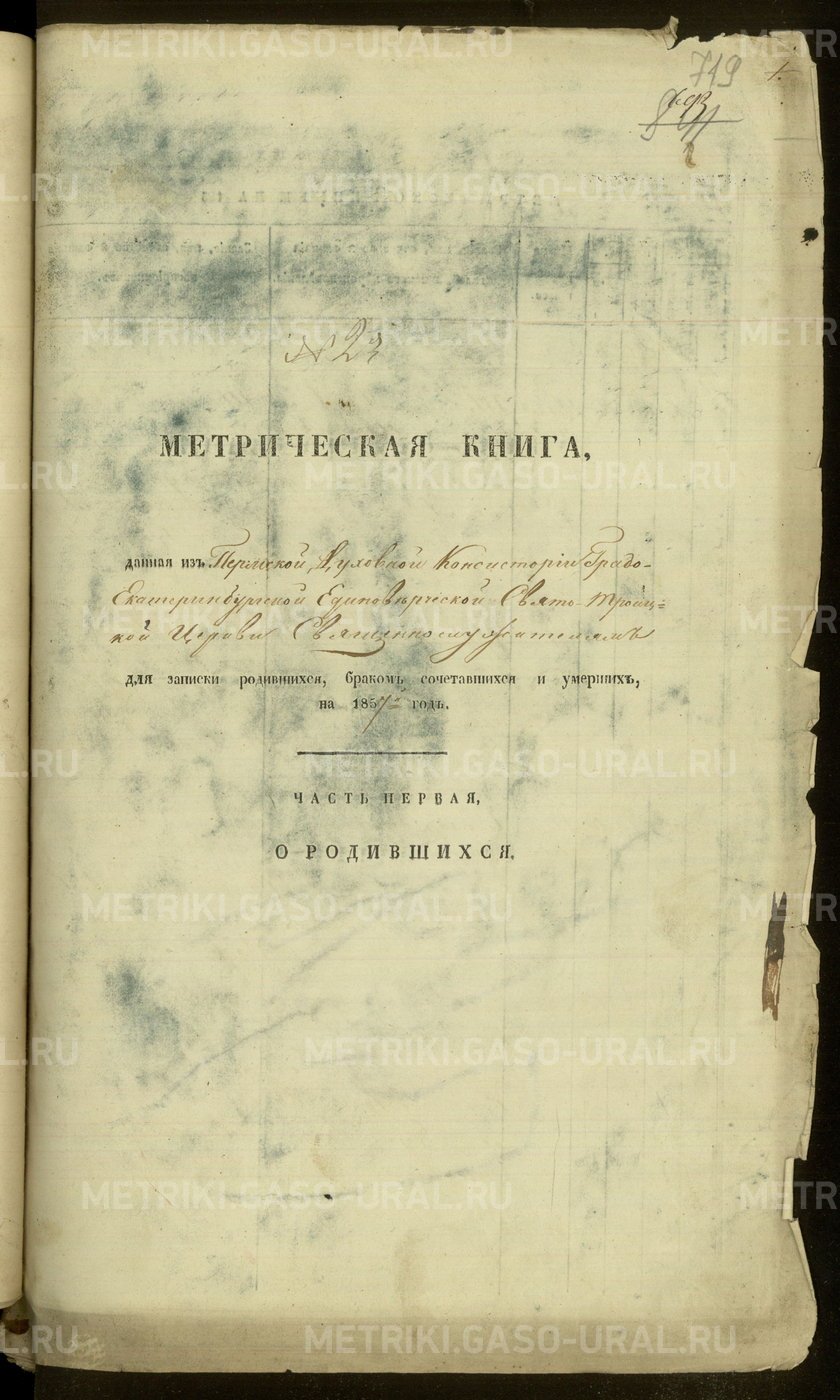 719
№ 23
МЕТРИЧЕСКАЯ КНИГА,
данная изъ Пермской Духовной Консисторіи Градо-
Екатеринбургской Единовѣрческой Свято-Троиц=
кой Церкви Священнослужителямъ
для записки родившихся, бракомъ сочетавшихся и умершихъ,
на 1857й годъ.
ЧАСТЬ ПЕРВАЯ,
О РОДИВШИХСЯ.
METRIKI.GASO-URAL.RU